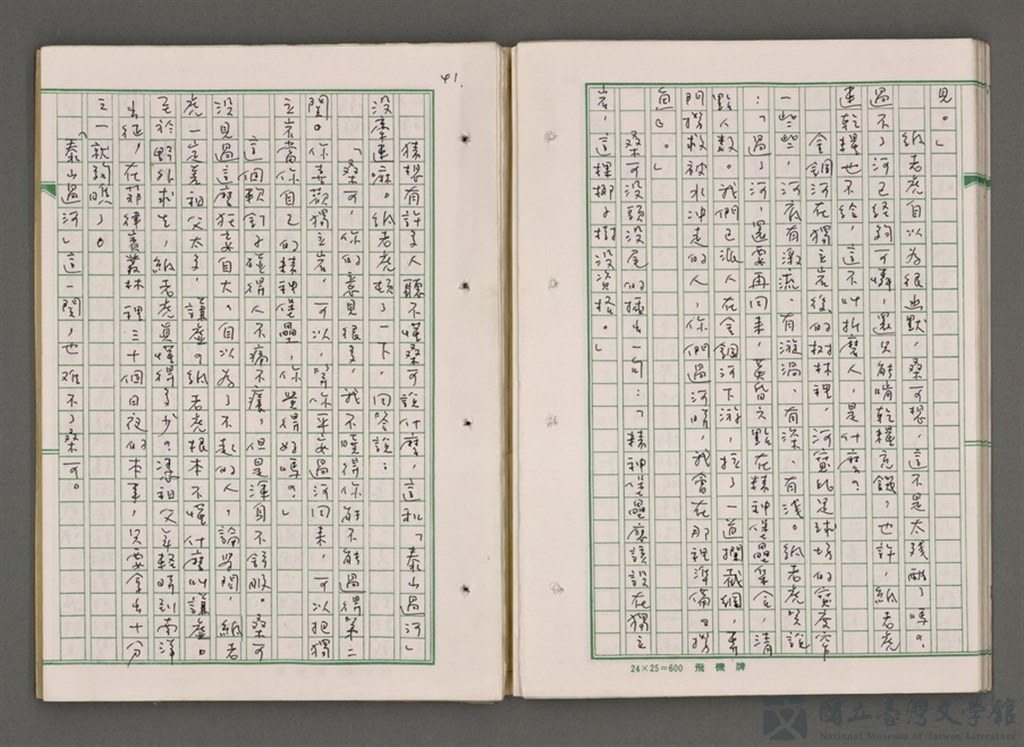 見。」
紙老虎自以為很幽默，桑可想，這不是太殘酷了嗎？
過不了河已經夠可憐，還只能啃乾糧充饑，也許，紙老虎
連乾糧也不給，這不叫折磨人，是什麼？
金銅河在獨立岩後的樹林裡，河寬比足球場的寬度窄
一些些，河底有激流、有漩渦、有深、有淺。紙老虎笑說
：「過了河，還要再回來，黃昏六點在精神堡壘集合，清
點人數。我們已派人在金銅河下游，拉了一道攔截網，專
門撈救被水沖走的人，你們過河時，我會在那裡準備。撈
魚。」
桑可沒頭沒尾的插出一句：「精神堡壘應該設在獨立
岩，這棵椰子樹沒資格。」
41.
猜想有許多人聽不懂桑可說什麼，這和「泰山過河」
沒牽連嘛。紙老虎頓了一下，回答說：
「桑可，你的意見很多，我不曉得你能不能過得第二
關。你喜歡獨立岩，可以，等你平安過河回來，可以把獨
立岩當你自己的精神堡壘，你覺得好嗎？」
這個軟釘子碰得人不痛不癢，但是渾身不舒服。桑可
沒見過這麼狂妄自大、自以為了不起的人，論學問，紙老
虎一定差祖父太多，謙虛？紙老虎根本不懂什麼叫謙虛。
至於野外求生，紙老虎真懂得多少？憑祖父年輕時到南洋
出征，在菲律賓叢林裡三十個日夜的本事，只要拿出十分
之一就夠瞧了。
「泰山過河」這一關，也難不了桑可。
24×25=600 飛機牌
國立臺灣文學館
National Museum of Taiwan Literature